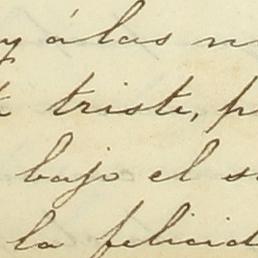 y á las n
triste, p
bajo el s
la felicid